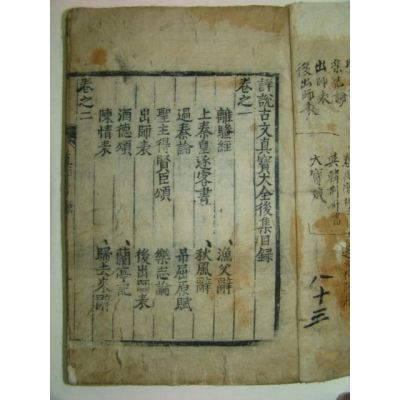 出師表
後出師表
八十三
詳說古文真寶大全後集目録
卷之一
離騷經 漁父辭
上秦皇逐客書 秋風辭
過秦論 吊屈原賦
聖主得賢臣頌 樂志論
出師表 後出師表
酒德頌 蘭亭記
陳情表 歸去來辭
卷之二